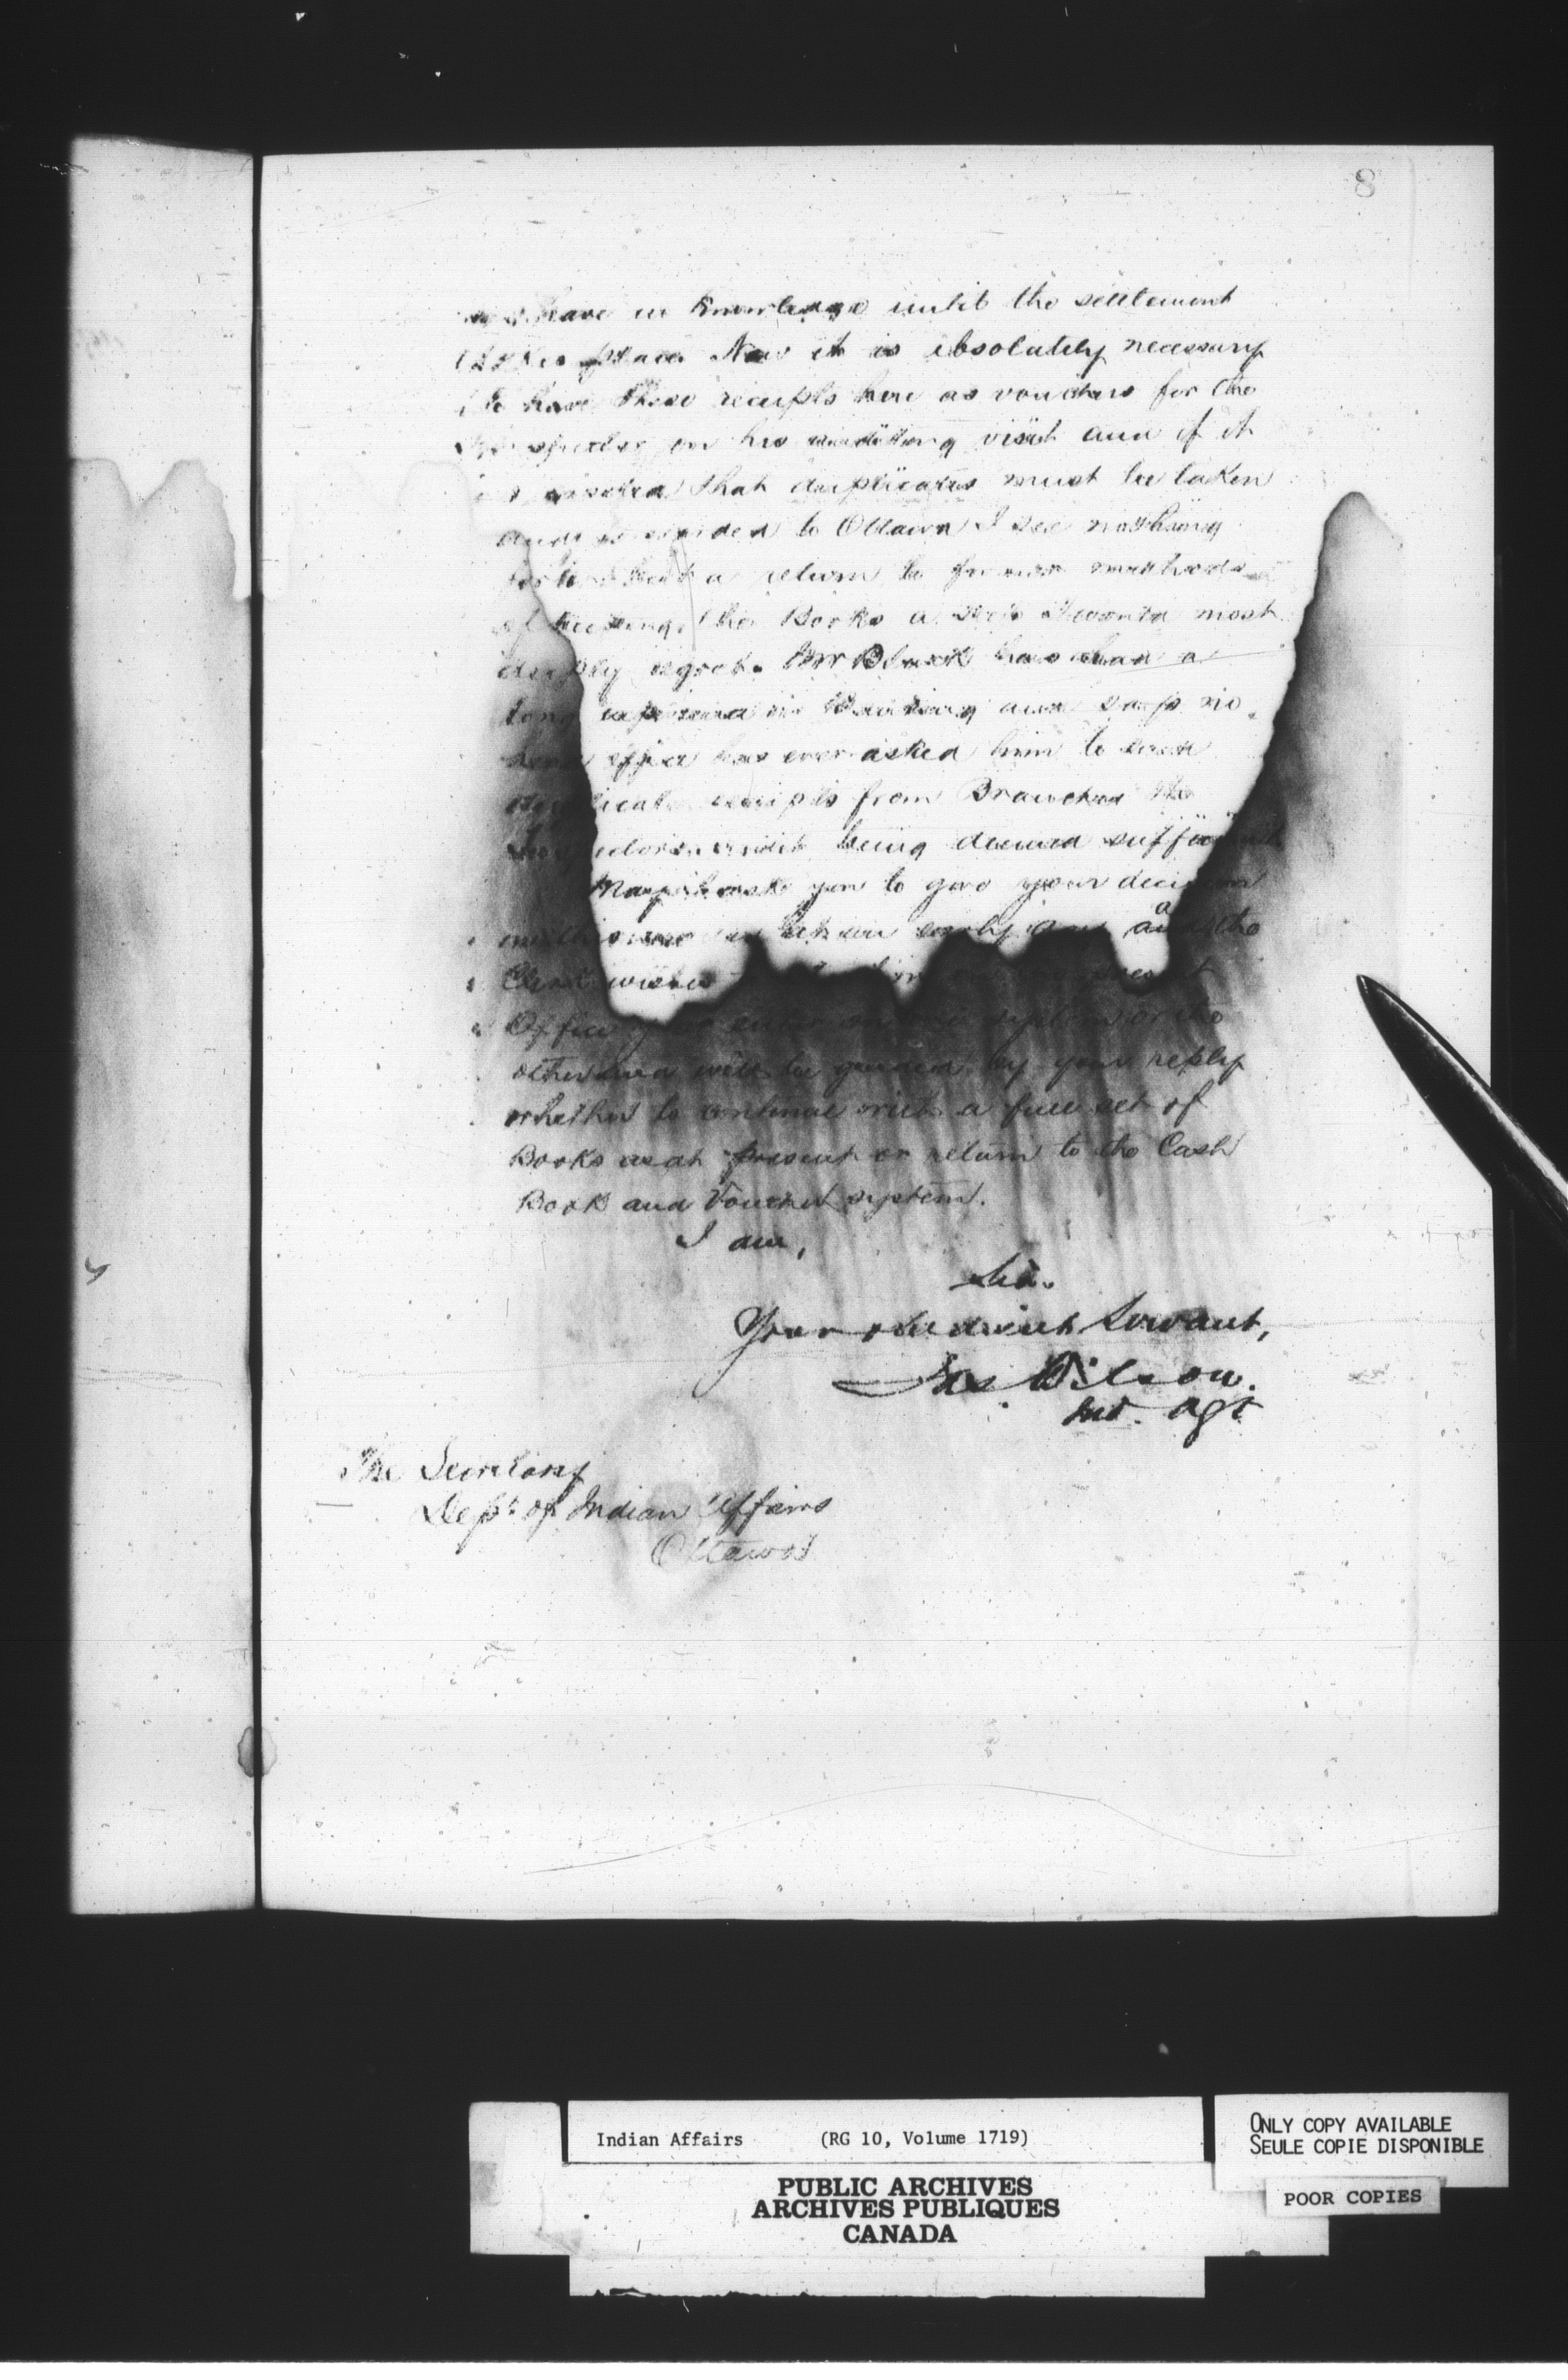 8
have no knowledge until the settlement
takes place. Now it is absolutely necessary
to have these receipts here as vouchers for the
Inspector on his auditing visit and if it
is insisted that duplicates must be taken
and forwarded to Ottawa I see nothing
for it but a return to former methods
of keeping the Books a step I would most
deeply regret. Mr Black has had a
long experience in Banking and says no
Head office has ever asked him to send
duplicate receipts from Branches the
Inspectors audit being deemed sufficient
May I ask you to give your decision
in this at an early day as the
Clerk
Office or the
other and will be guided by your reply
whether to continue with a full set of
Books as at present or return to the Cash
Book and Voucher system.
I am,
Sir.
Your obedient Servant,
Jas Wilson.
Ind. Agt
The Secretary
Dept of Indian Affairs
Ottawa
Indian Affairs (RG 10, Volume 1719)
PUBLIC ARCHIVES
ARCHIVES PUBLIQUES
CANADA
ONLY COPY AVAILABLE
SEULE COPIE DISPONIBLE
POOR COPIES